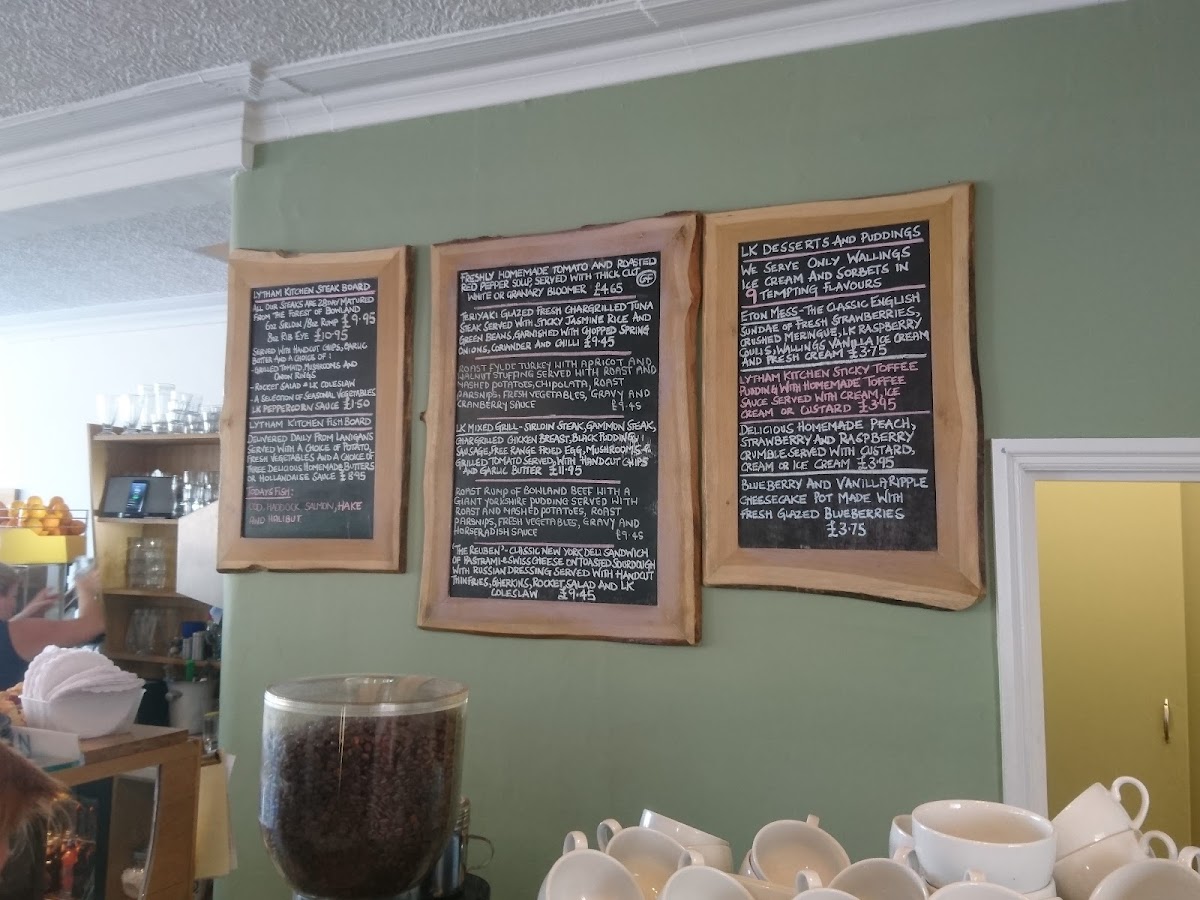 LYTHAM KITCHEN STEAK BOARD
ALL OUR STEAKS ARE 28 DAY MATURED
FROM THE FOREST OF BOWLAND
6OZ SIRLOIN / 8OZ RUMP £9.95
8OZ RIB EYE £10.95
SERVED WITH HANDCUT CHIPS, GARLIC
BUTTER AND A CHOICE OF:
- GRILLED TOMATO MUSHROOMS AND
ONION RINGS
- ROCKET SALAD & LK COLESLAW
- A SELECTION OF SEASONAL VEGETABLES
LK PEPPERCORN SAUCE £1.50
LYTHAM KITCHEN FISH BOARD
DELIVERED DAILY FROM LANIGANS
SERVED WITH A CHOICE OF POTATO,
FRESH VEGETABLES AND A CHOICE OF
THREE DELICIOUS HOMEMADE BUTTERS
OR HOLLANDAISE SAUCE £8.95
TODAYS FISH:
COD, HADDOCK, SALMON, HAKE
AND HALIBUT
FRESHLY HOMEMADE TOMATO AND ROASTED
RED PEPPER SOUP, SERVED WITH THICK CUT GF
WHITE OR GRANARY BLOOMER £4.65
TERIYAKI GLAZED FRESH CHARGRILLED TUNA
STEAK SERVED WITH STICKY JASMINE RICE AND
GREEN BEANS, GARNISHED WITH CHOPPED SPRING
ONIONS, CORIANDER AND CHILLI £9.45
ROAST FYLDE TURKEY WITH APRICOT AND
WALNUT STUFFING SERVED WITH ROAST AND
MASHED POTATOES, CHIPOLATA, ROAST
PARSNIPS, FRESH VEGETABLES, GRAVY AND
CRANBERRY SAUCE £9.45
LK MIXED GRILL - SIRLOIN STEAK, GAMMON STEAK,
CHARGRILLED CHICKEN BREAST, BLACK PUDDING,
SAUSAGE, FREE RANGE FRIED EGG, MUSHROOMS &
GRILLED TOMATO SERVED WITH HANDCUT CHIPS
AND GARLIC BUTTER £11.95
ROAST RUMP OF BOWLAND BEEF WITH A
GIANT YORKSHIRE PUDDING SERVED WITH
ROAST AND MASHED POTATOES, ROAST
PARSNIPS, FRESH VEGETABLES, GRAVY AND
HORSERADISH SAUCE £9.45
'THE REUBEN' - CLASSIC NEW YORK DELI SANDWICH
OF PASTRAMI & SWISS CHEESE ON TOASTED SOURDOUGH
WITH RUSSIAN DRESSING SERVED WITH HANDCUT
THIN FRIES, GHERKINS, ROCKET SALAD AND LK
COLESLAW £9.45
LK DESSERTS AND PUDDINGS
WE SERVE ONLY WALLINGS
ICE CREAM AND SORBETS IN
9 TEMPTING FLAVOURS
ETON MESS - THE CLASSIC ENGLISH
SUNDAE OF FRESH STRAWBERRIES,
CRUSHED MERINGUE, LK RASPBERRY
COULIS, WALLINGS VANILLA ICE CREAM
AND FRESH CREAM £3.75
LYTHAM KITCHEN STICKY TOFFEE
PUDDING WITH HOMEMADE TOFFEE
SAUCE SERVED WITH CREAM, ICE
CREAM OR CUSTARD £3.95
DELICIOUS HOMEMADE PEACH,
STRAWBERRY AND RASPBERRY
CRUMBLE SERVED WITH CUSTARD,
CREAM OR ICE CREAM £3.95
BLUEBERRY AND VANILLA RIPPLE
CHEESECAKE POT MADE WITH
FRESH GLAZED BLUEBERRIES
£3.75